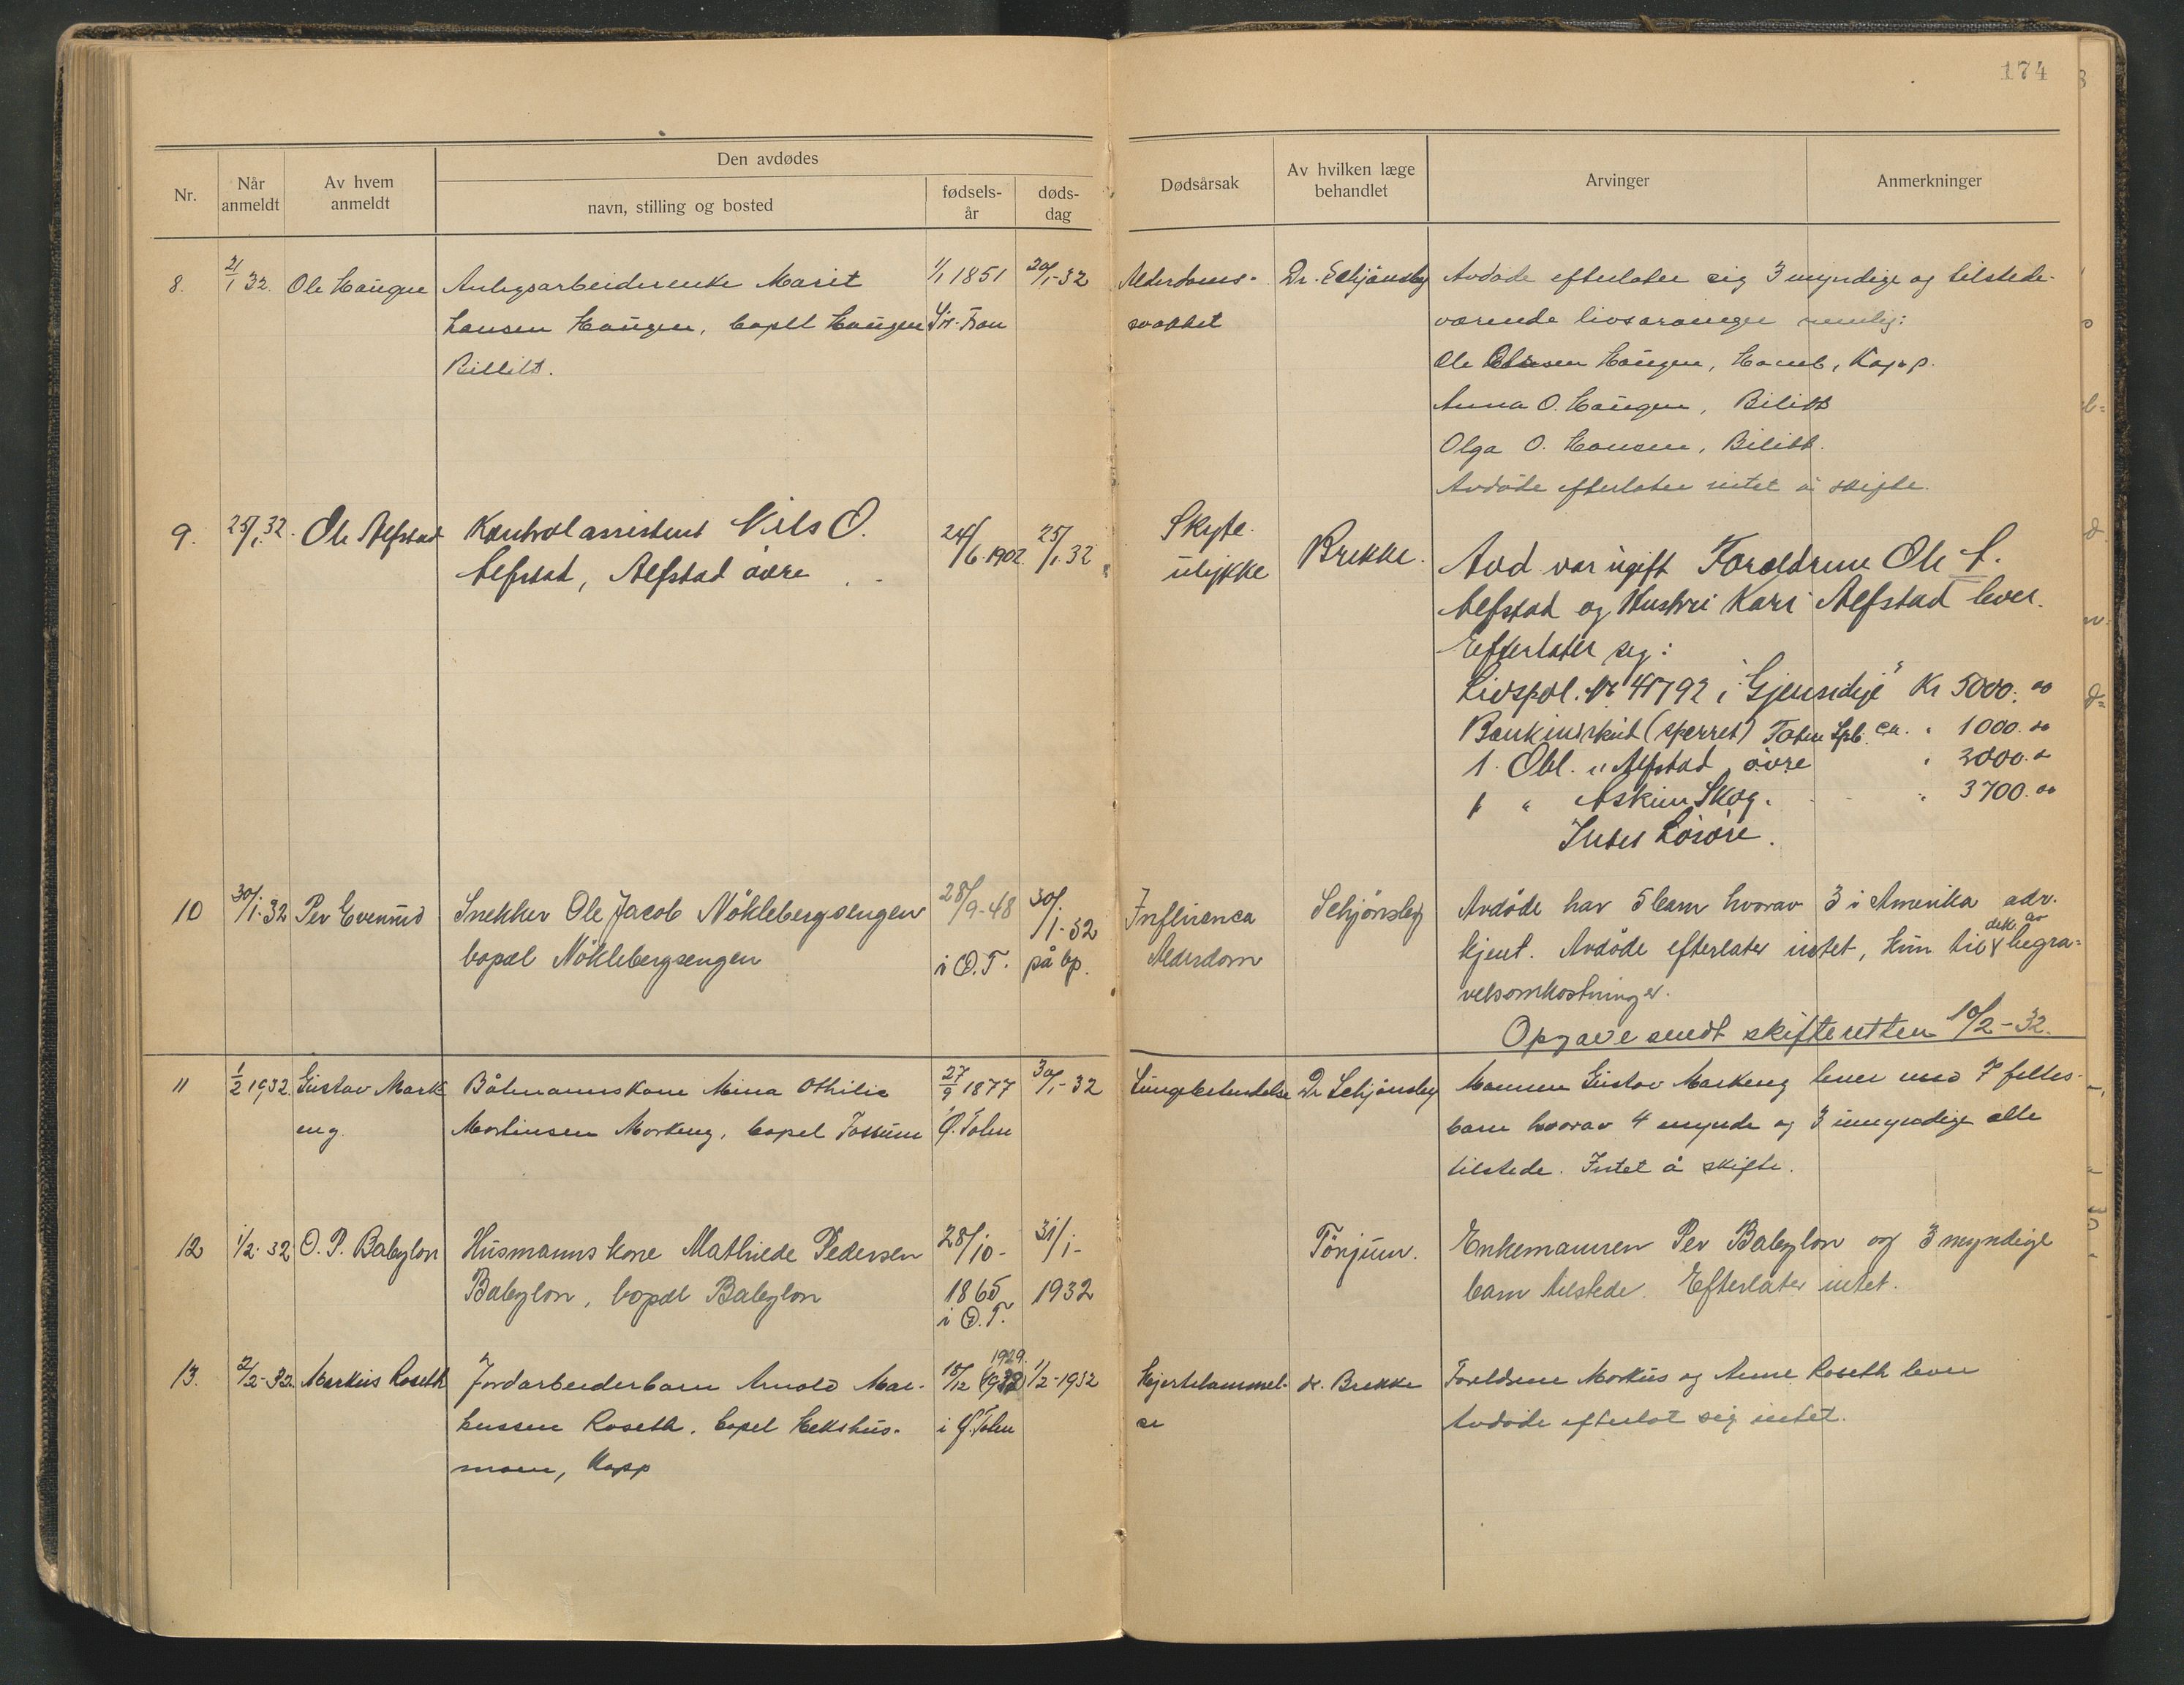 174
Nr.
Når
anmeldt
Av hvem
anmeldt
Den avdødes
navn, stilling og bosted
fødsels-
år
døds-
dag
Dødsårsak
Av hvilken læge
behandlet
Arvinger
Anmerkninger
8.
21/1 32.
Ole Haugen
Anlegsarbeiderenke Marit
Hansen Haugen, bopel Haugen
Billitt.
1/1 1851
20/1-32
Alderdoms-
svakhet
Dr. Schjønsby
Avdøde efterlater sig 3 myndige og tilstede-
værende livsarvinger nemlig:
Ole Haugen, Kapp.
Anna O. Haugen, Bilitt
Olga O. Hansen, Bilitt.
Avdøde efterlater intet å skifte.
9.
25/1.32.
Ole Alfstad
Kontrolassistent Nils O.
Alfstad, Alfstad øvre
24/6.1902
25/1.32
Skyte
ulykke
Brekke.
Avd var ugift Foreldrene Ole
Alfstad og Hustru Kari Alfstad lever.
Efterlater sig:
Livspol. Nr 41792 i "Gjensidige" Kr 5000.00
Bankinskud (sperret) Toten Spb. ca. " 1000.00
1 Obl. i Alfstad øvre " 2000.00
1 " Askim Skog. " 3700.00
Intet Løsøre.
10
30/1-32
Per Evenrud
Snekker Ole Jacob Nøklebergsengen
bopæl Nøklebergsengen
28/9-48
i Ø.T.
30/1-32
på bp.
Influenca
Alderdom
Schjønsby
Avdøde har 5 barn hvorav 3 i Amerika adr.
kjent. Avdøde efterlater intet, kun til dek. av begra-
velsomkostninger.
Opgave sendt skifteretten 10/2-32.
11
1/2 1932.
Gustav Mark
eng.
Båtmannskone Mina Othilie
Martinsen Markeng, bopel Fossum
27/9 1877
Ø. Toten
30/1-32
Lungebetendelse
Dr Schjønsby
Mannen Gustav Markeng lever med 7 felles-
barn hvorav 4 mynde og 3 umyndige alle
tilstede. Intet å skifte.
12
1/2-32
O. P. Babylon
Husmanns kone Mathilde Pedersen
Babylon, bopæl Babylon
28/10-
1865
i Ø.T.
31/1-
1932
Tønjum.
Enkemannen Per Babylon og 3 myndige
barn tilstede. Efterlater intet.
13.
2/2-32
Markus Roseth
Jordarbeiderbarn Arnold Mar-
kussen Roseth. bopel Hekshus-
moen, Kapp
18/12 1929.
i Ø. Toten
1/2-1932
Hjertelammel-
se
dr. Brekke
Foreldrene Markus og Anne Roseth lever
Avdøde efterlot sig intet.